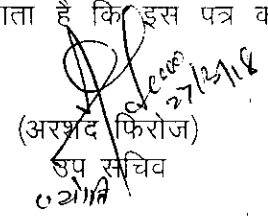 ाता है कि इस पत्र व
27/2/18
(अरशद फिरोज)
उप सचिव
ज्योति